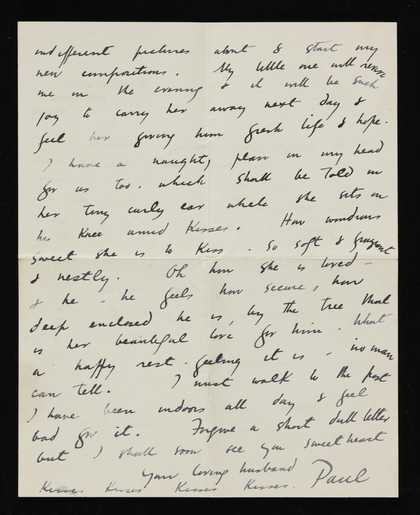 indifferent pictures about & start my
new compositions. My little one will renew
me in the evening & it will be such
joy to carry her away next day &
feel her giving him fresh life & hope.
I have a naughty plan in my head
for us too. which shall be told in
her tiny curly ear while she sits on
his knee amid kisses. How wondrous
sweet she is to kiss. So soft & fragrant
& nestly. Oh how she is loved –
& he – he feels how secure, how
deep enclosed he is, by the tree that
is her beautiful love for him. What
a happy rest-feeling it is – no man
can tell. I must walk to the post
I have been indoors all day & feel
bad for it. Forgive a short dull letter
but I shall soon see you sweetheart
Your loving husband
Kisses Kisses Kisses Kisses. Paul